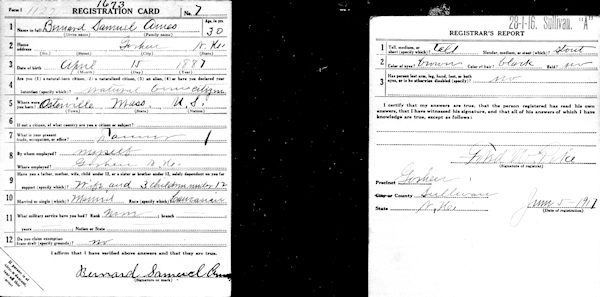 1673
Form 1 1127 REGISTRATION CARD No. 7
1 Name in full Bernard Samuel Ames Age, in yrs. 30
(Given name) (Family name)
2 Home address Goshen N. H.
(No.) (Street) (City) (State)
3 Date of birth April 15 1887
(Month) (Day) (Year)
4 Are you (1) a natural-born citizen, (2) a naturalized citizen, (3) an alien, (4) or have you declared your
intention (specify which)? natural born citizen
5 Where were you born? Osterville Mass. U.S.
(Town) (State) (Nation)
6 If not a citizen, of what country are you a citizen or subject?
7 What is your present trade, occupation, or office? Farmer 1
8 By whom employed? myself
Where employed? Goshen N. H.
9 Have you a father, mother, wife, child under 12, or a sister or brother under 12, solely dependent on you for
support (specify which)? Wife and 3 Children under 12
10 Married or single (which)? Married Race (specify which)? Caucasian
11 What military service have you had? Rank None branch
years Nation or State
12 Do you claim exemption from draft (specify grounds)? no
I affirm that I have verified above answers and that they are true.
Bernard Samuel Ames
(Signature or mark)
28-1-16. Sullivan. "A"
REGISTRAR'S REPORT
1 Tall, medium, or short (specify which)? tall Slender, medium, or stout (which)? Stout
2 Color of eyes? brown Color of hair? black Bald? no
3 Has person lost arm, leg, hand, foot, or both eyes, or is he otherwise disabled (specify)? no
I certify that my answers are true, that the person registered has read his own
answers, that I have witnessed his signature, and that all of his answers of which I have
knowledge are true, except as follows:
(Signature of registrar)
Precinct Goshen
City or County Sullivan
State N. H. June 5 - 1917
(Date of registration)